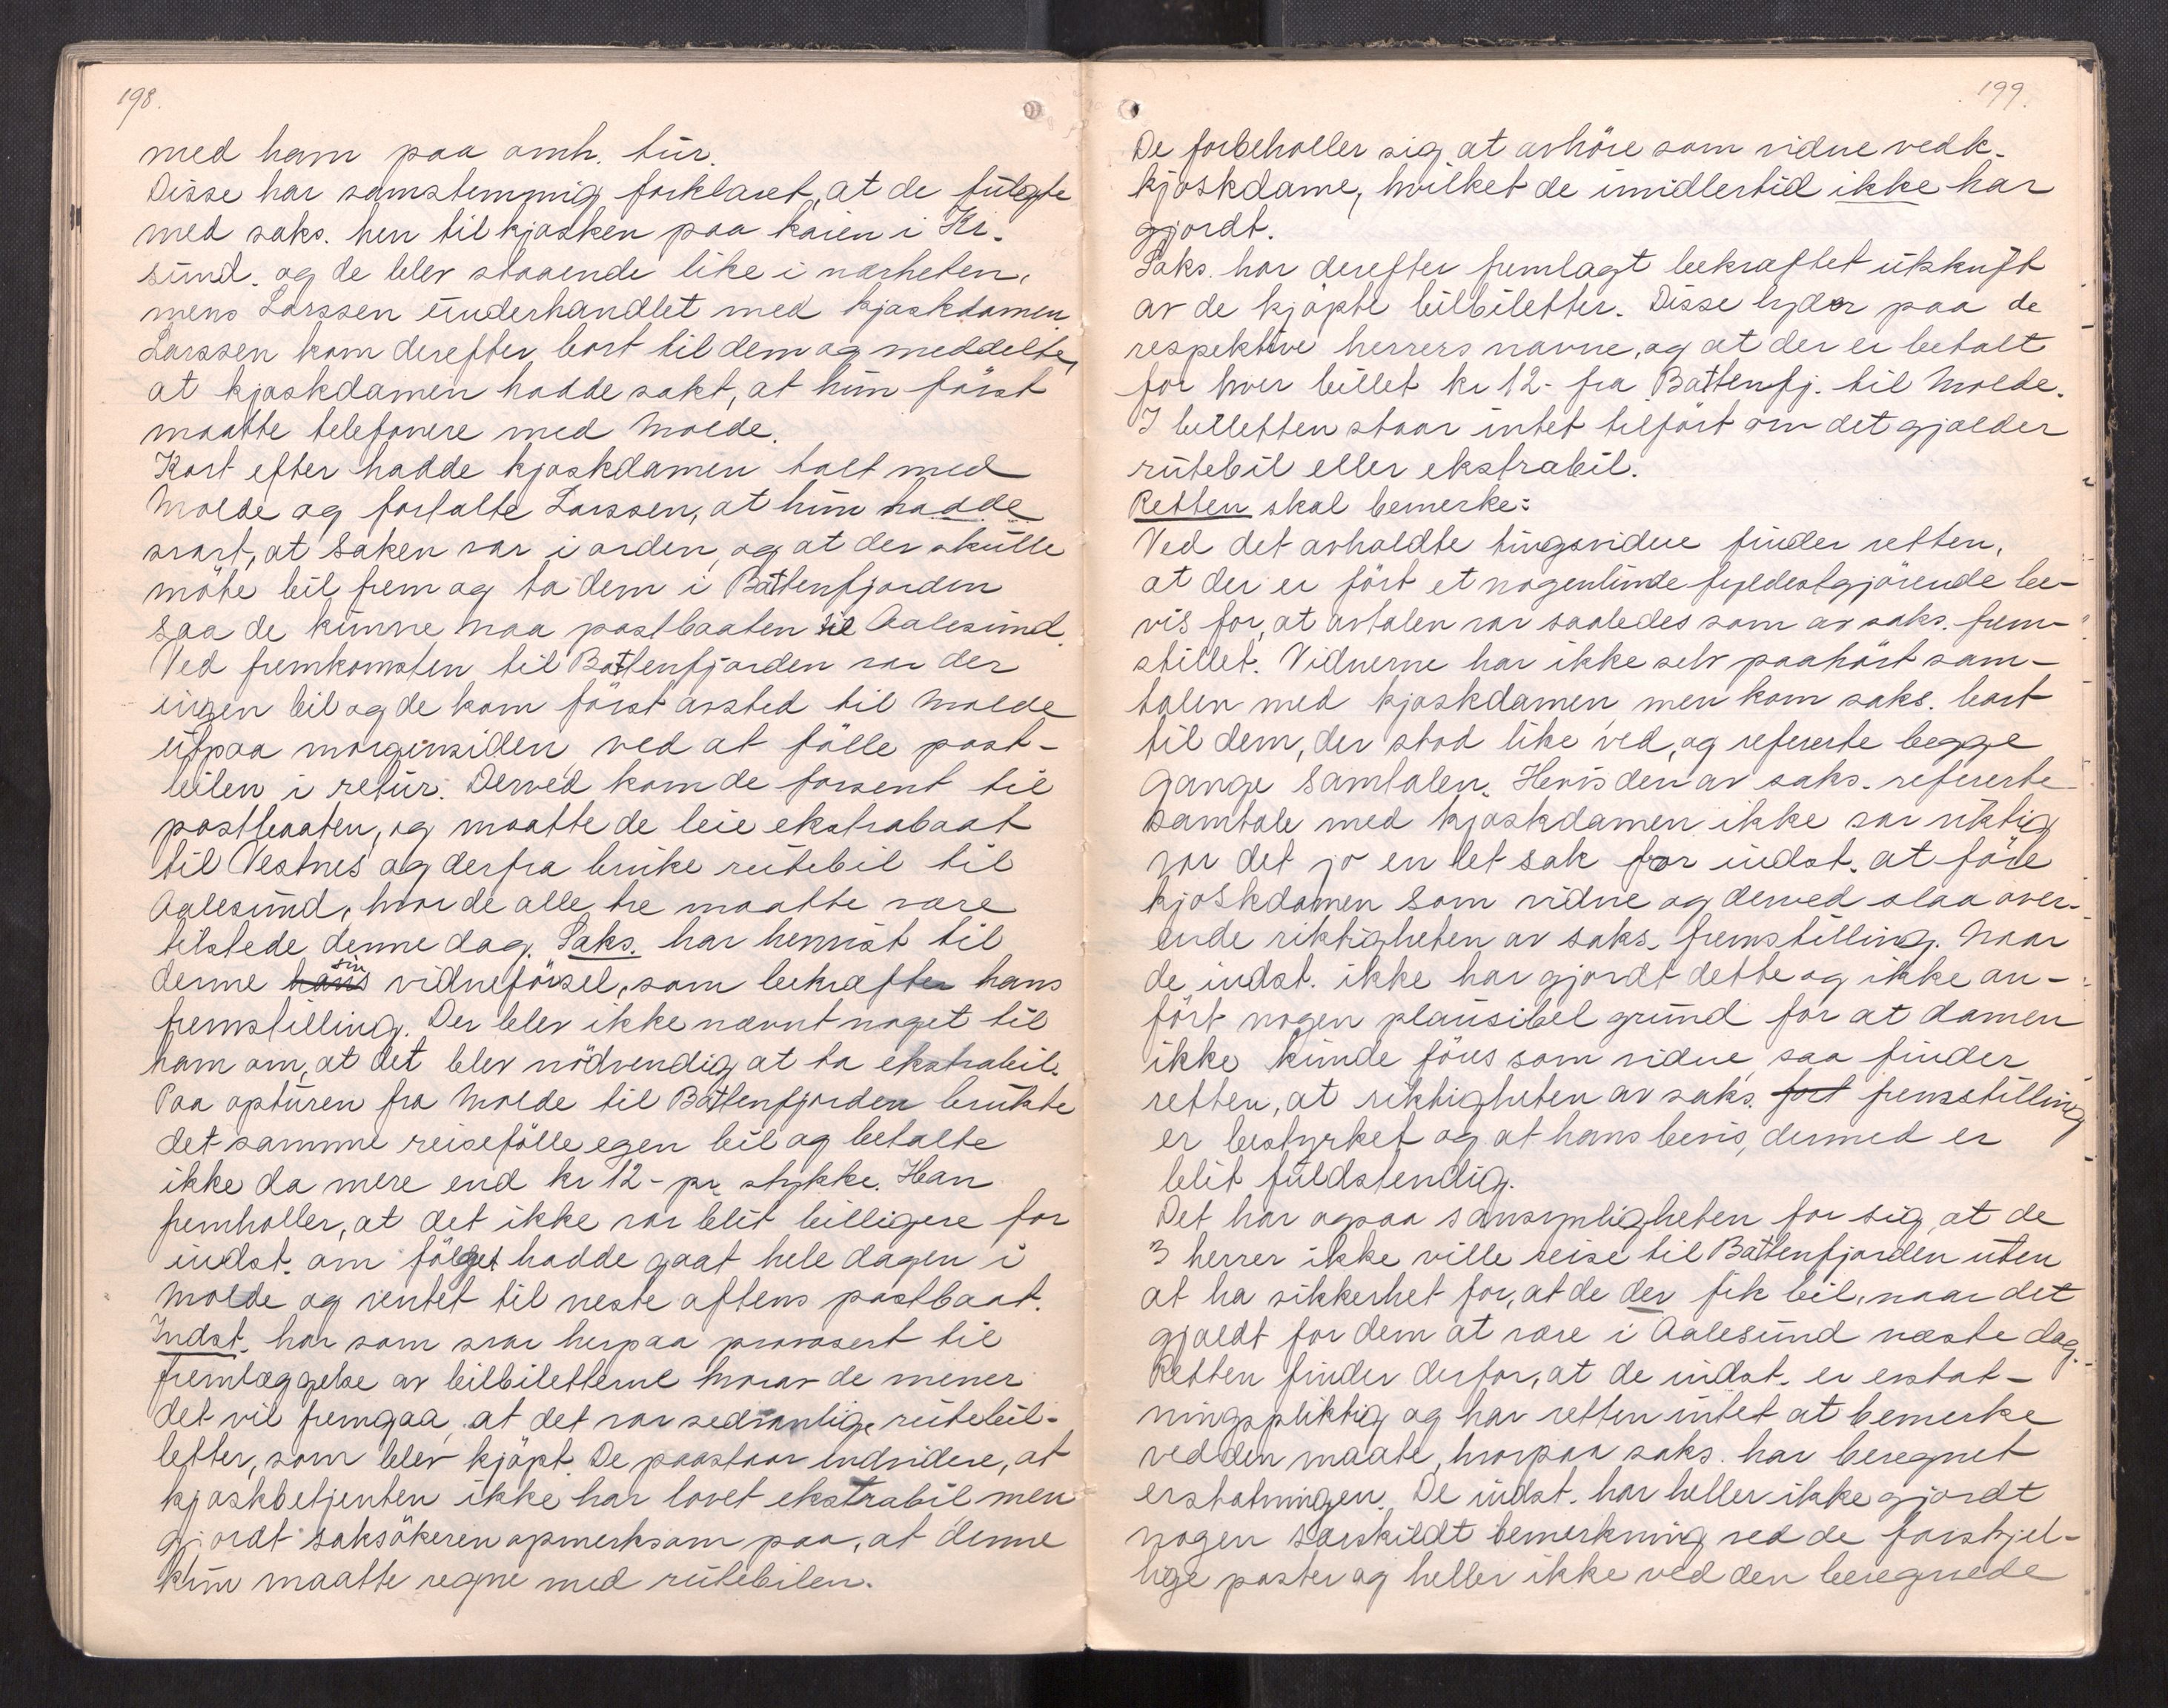 198.
med ham paa omh. tur.
Disse har samstemmig forklaret, at de fulgte
med saks. hen til kjosken paa kaien i Kr.
sund. og de blev staaende like i nærheten,
mens Larssen underhandlet med kjoskdamen.
Larssen kom derefter bort til dem og meddelte,
at kjoskdamen hadde sakt, at hun först
maatte telefonere med Molde.
Kort efter hadde kjoskdamen talt med
Molde og fortalte Larssen, at hun hadde
svart, at saken var i orden, og at der skulle
möte bil frem og ta dem i Battenfjorden
saa de kunne naa postbaaten til Aalesund.
Ved fremkomsten til Battenfjorden var der
ingen bil og de kom först avsted til Molde
utpaa morgensiden ved at fölle post-
bilen i retur. Derved kom de forsent til
postbaaten, og maatte de leie ekstrabaat
til Vestnes og derfra bruke rutebil til
Aalesund, hvor de alle tre maatte være
tilstede denne dag. Saks. har henvist til
denne hans sin vidneförsel, som bekræfter hans
fremstilling. Der blev ikke nævnt noget til
ham om, at det blev nödvendig at ta ekstrabil.
Paa opturen fra Molde til Battenfjorden brukte
det samme reisefölle egen bil og betalte
ikke da mere end kr 12- pr stykke. Han
fremholler, at det ikke var blit billigere for
indst. om fölget hadde gaat hele dagen i
Molde og ventet til neste aftens postbaat.
Indst. har som svar herpaa provosert til
fremlæggelse av bilbiletterne hvorav de mener
det vil fremgaa, at det var sedvanlige rutebil-
letter, som blev kjöpt. De paastaar endvidere, at
kjoskbetjenten ikke har lovet ekstrabil men
gjordt saksökeren opmerksom paa, at denne
kun maatte regne med rutebilen.
199.
De forbeholler sig at avhöre som vidne vedk.
kjoskdame, hvilket de imidlertid ikke har
gjordt.
Saks. har derefter fremlagt bekræftet utskrift
av de kjöpte bilbiletter. Disse lyder paa de
respektive herrers navne, og at der er betalt
for hver billet kr 12- fra Battenfj. til Molde.
I billetten staar intet tilfört om det gjælder
rutebil eller ekstrabil.
Retten skal bemerke:
Ved det avholdte tingsvidne finder retten,
at der er fört et nogenlunde fyldestgjörende be-
vis for, at avtalen var saaledes som av saks. frem-
stillet. Vidnerne har ikke selv paahört sam-
talen med kjoskdamen, men kom saks. bort
til dem, der stod like ved, og refererte begge
gange samtalen. Hvis den av saks. refererte
samtale med kjoskdamen ikke var riktig
var det jo en let sak for indst. at före
kjoskdamen som vidne og derved slaa over-
ende riktigheten av saks. fremstilling. Naar
de indst. ikke har gjordt dette og ikke an-
fört nogen plausibel grund for at damen
ikke kunde föres som vidne, saa finder
retten, at riktigheten av saks. fort fremstilling
er bestyrket og at hans bevis, dermed er
blit fuldstendig.
Det har ogsaa sansynligheten for sig, at de
3 herrer ikke ville reise til Battenfjorden uten
at ha sikkerhet for, at de der fik bil, naar det
gjaldt for dem at være i Aalesund næste dag.
Retten finder derfor, at de indst. er erstat-
ningspliktig og har retten intet at bemerke
ved den maate, hvorpaa saks. har beregnet
erstatningen. De indst. har heller ikke gjordt
nogen særskildt bemerkning ved de forskjel-
lige poster og heller ikke ved den beregnede